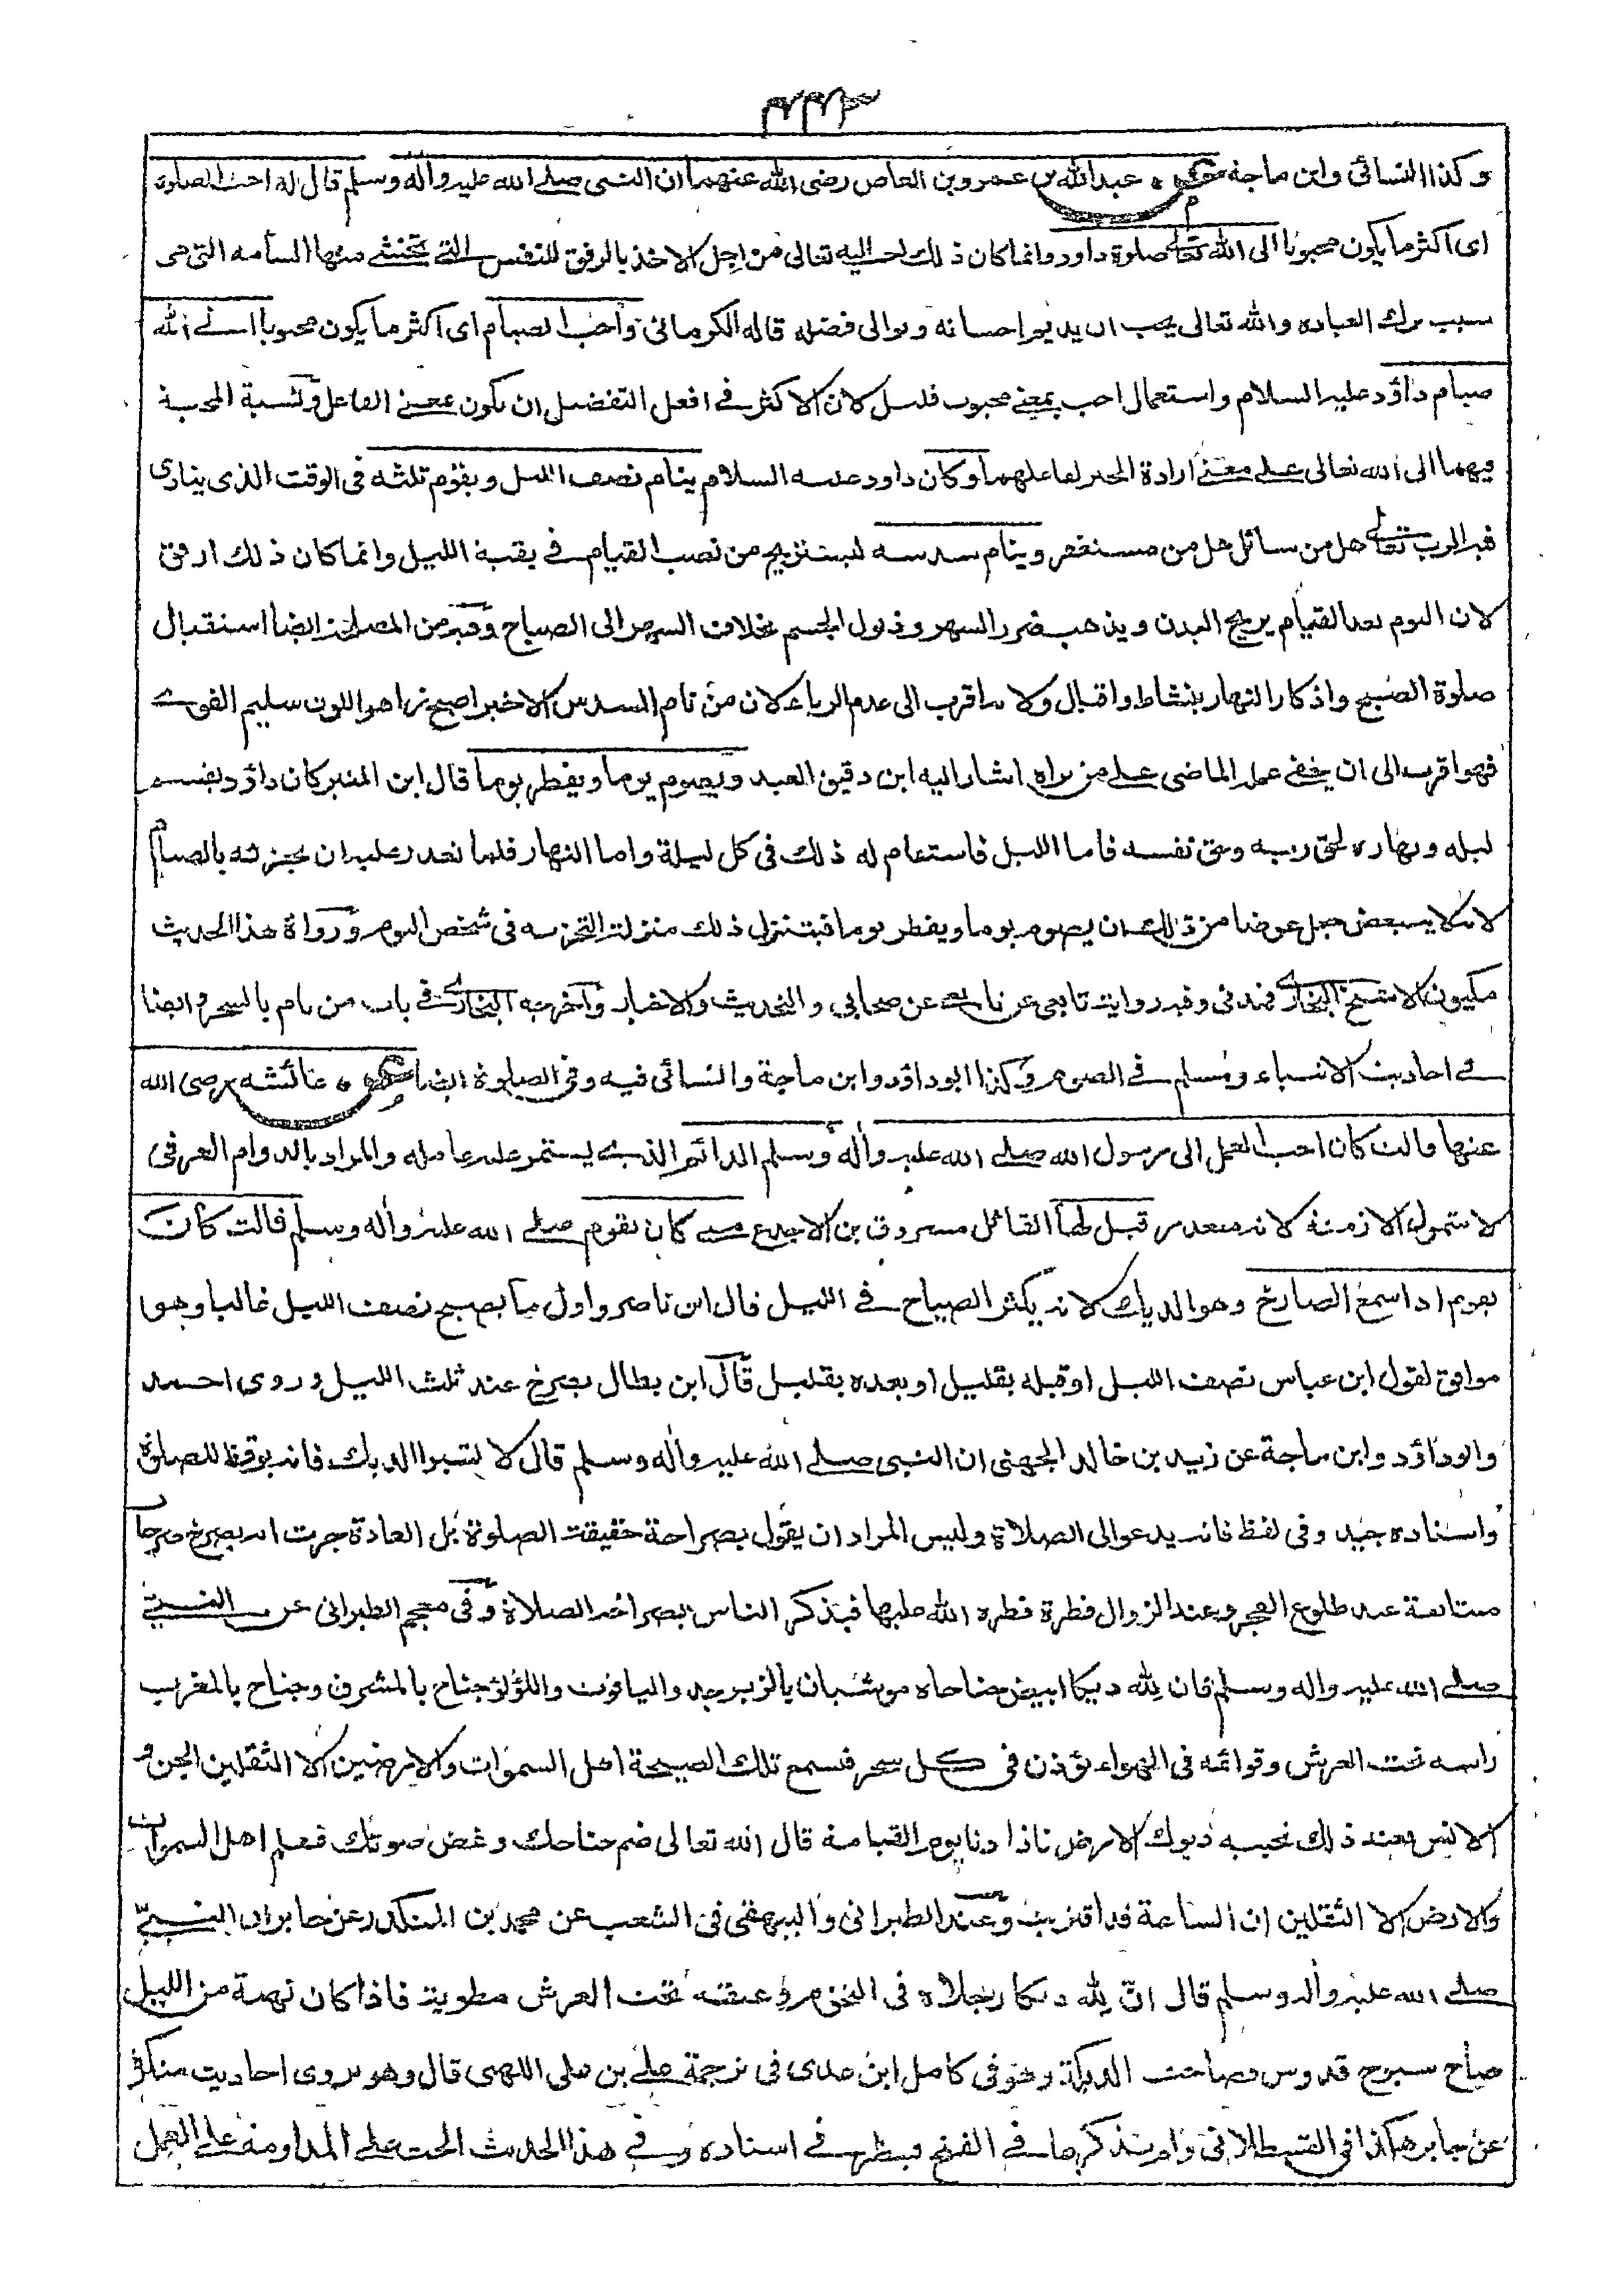 ۴۴۳
وكذا النسائى وابن ماجة عن عبدالله بن عمرو بن العاص رضى الله عنهما ان النبى صلے الله عليه واٰله وسلم قال له احب الصلوة
اى اكثر ما يكون محبوبا الى الله تعالے صلوة داود وانما كان ذلك احب اليه تعالى من اجل الاخذ بالرفق للنفس التے يخشے منها السأمه التى هى
سبب ترك العباده والله تعالى يحب ان يديم احسانه ويوالى فضله قاله الكرمانى واحب الصيام اى اكثر ما يكون محبوبا الے الله
صيام داؤد عليه السلام واستعمال احب بمعنے محبوب قليل لان الاكثر فے افعل التفضيل ان يكون بمعنے الفاعل ونسبة المحبة
فيهما الى الله تعالى علے معنے ارادة الخير لفاعلهما وكان داود عليه السلام ينام نصف الليل ويقوم ثلثه فى الوقت الذى ينادى
فيه الرب تعالے هل من سائل هل من مستغفر وينام سدسه ليستريح من نصب القيام فے بقية الليل وانما كان ذلك ارفق
لان النوم بعد القيام يريح البدن ويذهب ضرر السهر وذبول الجسم بخلاف السهر الى الصباح وفيه من المصلحة ايضا استقبال
صلوة الصبح واذكار النهار بنشاط واقبال ولانه اقرب الى عدم الرياء لان من نام السدس الاخير اصبح زاهر اللون سليم القوے
فهو اقرب الى ان يخفى عمله الماضى علے من يراه اشار اليه ابن دقيق العيد ويصوم يوما ويفطر يوما قال ابن المنير كان داؤد يقسم
ليله ونهاره لحق ربه وحق نفسه فاما الليل فاستقام له ذلك فى كل ليلة واما النهار فلما تعذر عليه ان يجزئه بالصيام
لانه لا يتبعض جعل عوضا من ذلك ان يصوم يوما ويفطر يوما فيتنزل ذلك منزلة التجزيه فى شخص اليوم ورواة هذا الحديث
مكيون الا شيخ البخارے فمدنى وفيه رواية تابعى عن تابعے عن صحابى والتحديث والاخبار وأخرجه البخارے فے باب من نام بالسحر وايضا
فے احاديث الانبياء ومسلم فے الصوم وكذا ابو داؤد وابن ماجة والنسائى فيه وفى الصلوة ايضا عن عائشه رضى الله
عنها قالت كان احب العمل الى رسول الله صلے الله عليه واٰله وسلم الدائم الذے يستمر عليه عامله والمراد بالدوام العرفى
لا شمول الازمنة لانه متعذر قيل لها القائل مسروق بن الاجدع متے كان يقوم صلے الله عليه واٰله وسلم قالت كان
يقوم اذا سمع الصارخ وهو الديك لانه يكثر الصياح فے الليل قال ابن ناصر واول ما يصيح نصف الليل غالبا وهو
موافق لقول ابن عباس نصف الليل او قبله بقليل او بعده بقليل قال ابن بطال يصرخ عند ثلث الليل وروى احمد
وابوداؤد وابن ماجة عن زيد بن خالد الجهنى ان النبى صلے الله عليه واٰله وسلم قال لا تسبوا الديك فانه يوقظ للصلوة
واسناده جيد وفى لفظ فانه يدعو الى الصلاة وليس المراد ان يقول بصراحة حقيقة الصلوة بل العادة جرت انه يصرخ صرخات
متتابعة عند طلوع الفجر وعند الزوال فطرة فطره الله عليها فيذكر الناس بصراخه الصلاة وفى معجم الطبرانى عن النبے
صلے الله عليه واله وسلم قال ان لله ديكا ابيض جناحاه موشيان بالزبرجد والياقوت واللؤلؤ جناح بالمشرق وجناح بالمغرب
راسه تحت العرش وقوائمه فى الهواء يؤذن فى كل سحر فسمع تلك الصيحة اهل السموات والارضين الا الثقلين الجن و
الانس فعند ذلك تجيبه ديوك الارض فاذا دنا يوم القيامة قال الله تعالى ضم جناحك وغض صوتك فعلم اهل السموات
والارض الا الثقلين ان الساعة قد اقتربت وعند الطبرانى والبيهقى فى الشعب عن محمد بن المنكدر عن جابر ان النبےّ
صلے الله عليه واٰله وسلم قال انّ لله ديكا رجلاه فى التخوم وعنقه تحت العرش مطوية فاذا كان نهمة من الليل
صاح سبوح قدوس فصاحت الديكة وهو فى كامل ابن عدى فى ترجمة علے بن على اللهبى قال وهو يروى احاديث منكرة
عن جابر هكذا فى القسطلانى ولم يذكرها فے الفتح فينظر فے اسناده وفے هذا الحديث الحث علے المداومة علے العمل